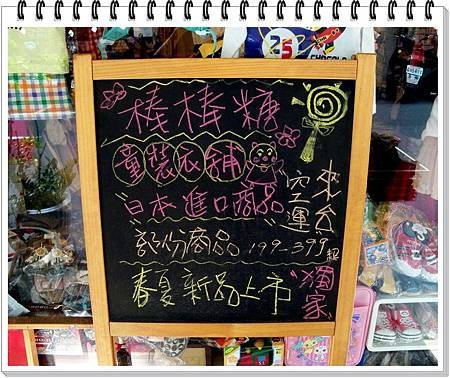 25
CHOCOLA
棒棒糖
童裝衣舖
"日本進口商品"
空運來台
"部份商品 199-399起
春夏新品上市
"獨家"